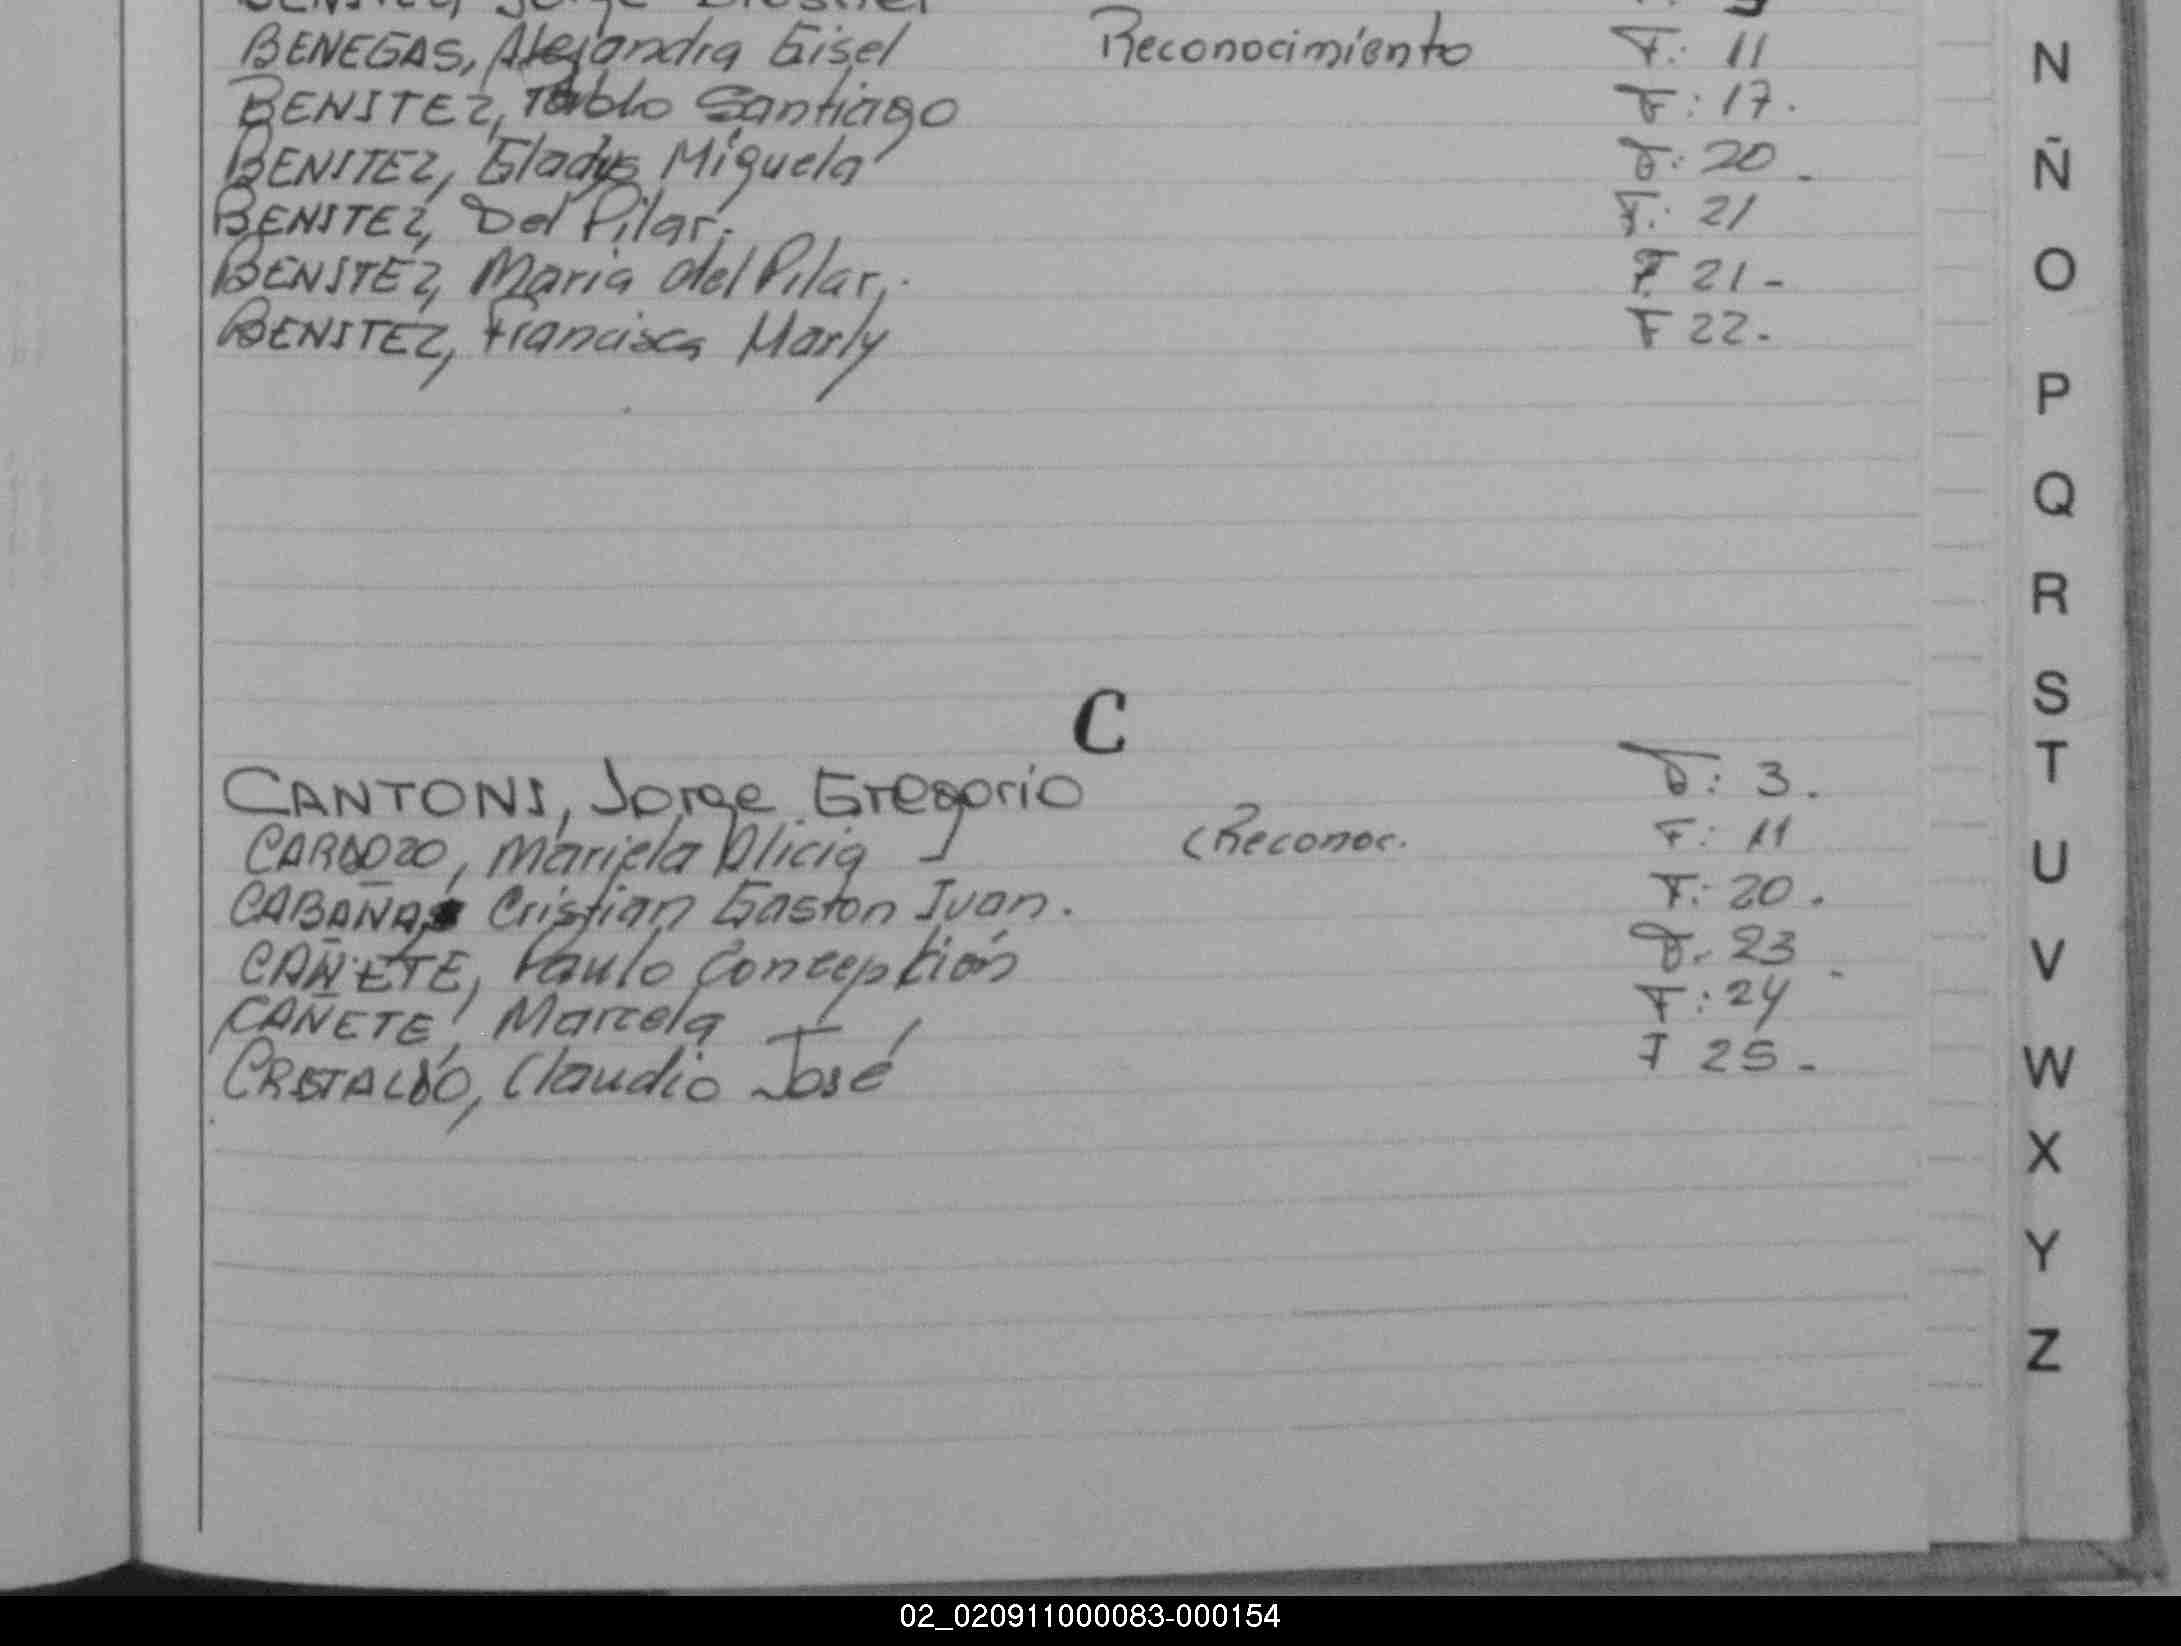 BENEGAS, Alejandra Gisel Reconocimiento F: 11
BENITEZ, Pablo Santiago F: 17.
BENITEZ, Gladys Miguela F: 20.
BENITEZ, Del Pilar. F: 21
BENITEZ, Maria del Pilar. F 21-
BENITEZ, Francisca Marly F 22.
C
CANTONI, Jorge Gregorio F: 3.
CARDOZO, Mariela Alicia (Reconoc. F: 11
CABAÑAS Cristian Gaston Ivan. F: 20.
CAÑETE, Paulo Concepción F. 23
CAÑETE, Marcela F: 24
CRISTALDO, Claudio José F 25-
N
Ñ
O
P
Q
R
S
T
U
V
W
X
Y
Z
02_020911000083-000154